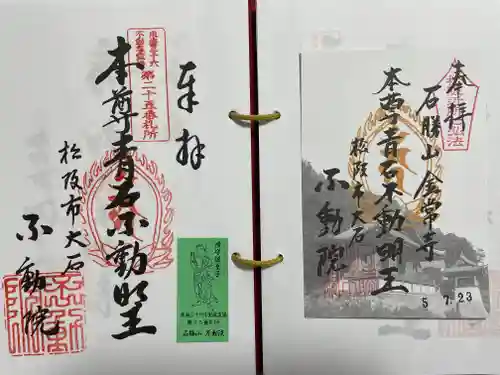 奉拝
東海三十六
不動尊霊場
第二十五番札所
本尊青石不動明王
松阪市大石
不動院
石勝山 不動院
奉拝
石勝山金常寺
本尊青石不動明王
松阪市大石
不動院
5 7.23